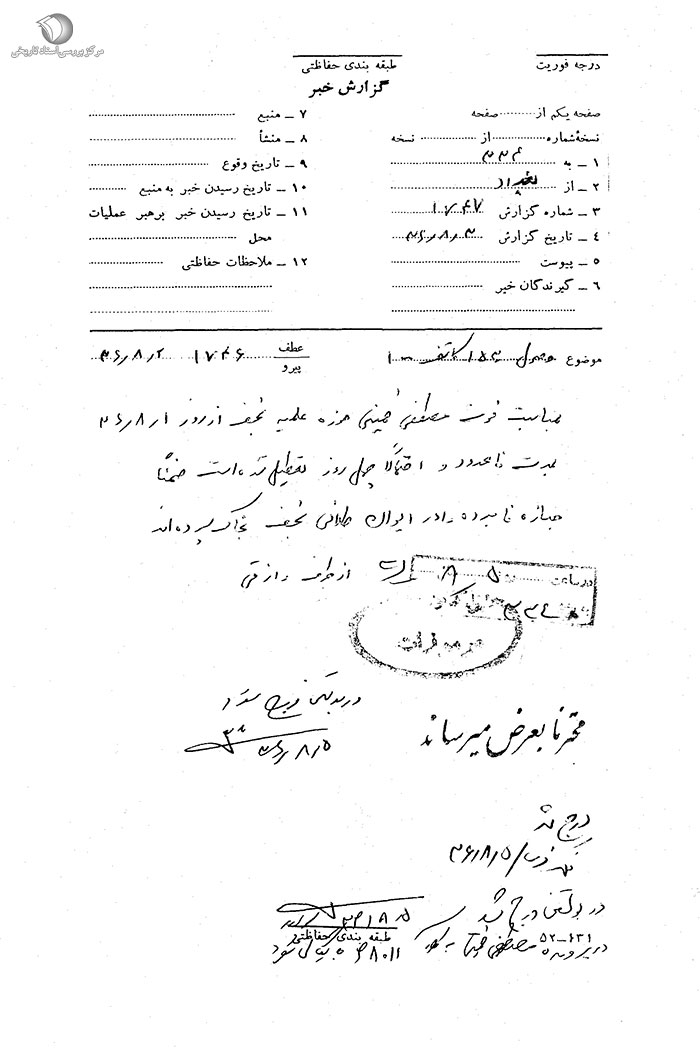 مرکز بررسی اسناد تاریخی
درجه فوریت
طبقه بندی حفاظتی
گزارش خبر
صفحه یکم از ............ صفحه
نسخهٔ شماره ............ از ............ نسخه
۱ ـ به ۳۳۴
۲ ـ از بغداد
۳ ـ شماره گزارش ۱۷۴۷
۴ ـ تاریخ گزارش ۳۶/۸/۳
۵ ـ پیوست
۶ ـ گیرندگان خبر
۷ ـ منبع
۸ ـ منشأ
۹ ـ تاریخ وقوع
۱۰ ـ تاریخ رسیدن خبر به منبع
۱۱ ـ تاریخ رسیدن خبر برهبر عملیات
محل
۱۲ ـ ملاحظات حفاظتی
موضوع
عطف
پیرو
۱۷۴۶ ۳۶/۸/۲
بمناسبت فوت مصطفی خمینی حوزه علمیه نجف از روز ۳۶/۸/۱
بمدت نامحدود و احتمالا چهل روز تعطیل شده است ضمناً
جنازه نامبرده را در ایوان طلائی نجف بخاک سپرده‌اند
از طرف
در ساعت
محترماً بعرض میرساند
در بولتن درج شود
۳۶/۸/۵
درج شد
۳۶/۸/۵
در بولتن درج شد
طبقه بندی حفاظتی
۵۲-۴۳۱
در پرونده مصطفی خمینی به کلاسه